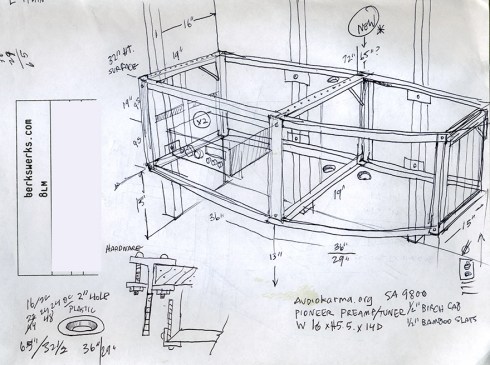 16"
NEW *
32" HT.
SURFACE
19"
72" 65"?
19"
9"
9"
X2
berkswerks.com
8LM
13"
19"
36"
36"
29"
15"
13"
HARDWARE
2" HOLE
PLASTIC
65"/32 1/2 36"/29"
AUDIOKARMA.ORG SA 9800
PIONEER PREAMP/TUNER 1/2" BIRCH CAB
W 16 x H5.5 x 14D 1/2" BAMBOO SLATS